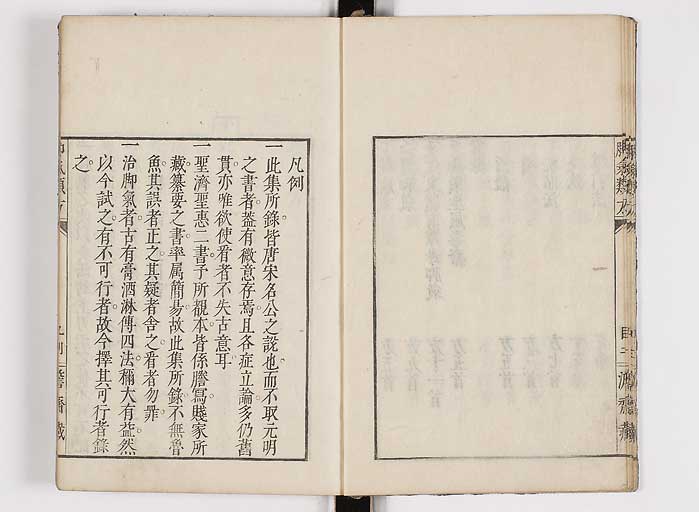 脚氣類方
目
凡例
一此集所錄皆唐宋名公之說也而不取元明
之書者蓋有微意存焉且各症立論多仍舊
貫亦唯欲使看者不失古意耳
一聖濟聖惠二書予所覩本皆係謄寫賤家所
藏纂要之書率属簡昜故此集所錄不無魯
魚其誤者正之其疑者舍之看者勿罪
一治脚氣者古有膏酒淋傅四法稱大有益然
以今試之有不可行者故今擇其可行者錄
之